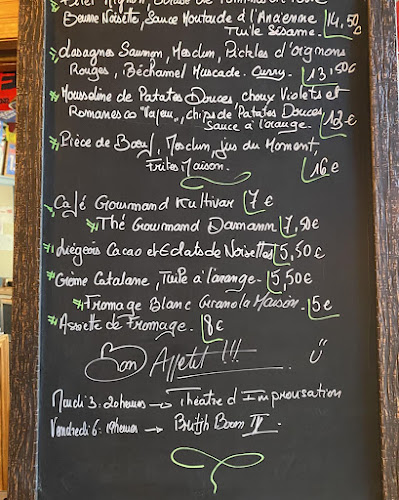 Beurre Noisette, Sauce Moutarde à l'Ancienne
Tuile Sésame. 14,50€
Lasagnes Saumon, Mesclun, Pickles d'oignons
Rouges, Béchamel Muscade. Curry. 13,50€
Mousseline de Patates Douces, choux Violets et
Romanesco Vapeur, chips de Patates Douces
Sauce à l'orange. 12€
Pièce de Bœuf, Mesclun, jus du Moment,
Frites Maison. 16€
Café Gourmand Kultivar 7€
Thé Gourmand Damann 7,50€
Liégeois Cacao et Eclats de Noisettes 5,50€
Crème Catalane, Tuile à l'orange. 5,50€
Fromage Blanc Granola Maison. 5€
Assiette de Fromage. 8€
Bon Appetit !!!
Mardi 3: 20 heures → Théatre d'Improvisation
Vendredi 6: 19 heures → British Boom IV